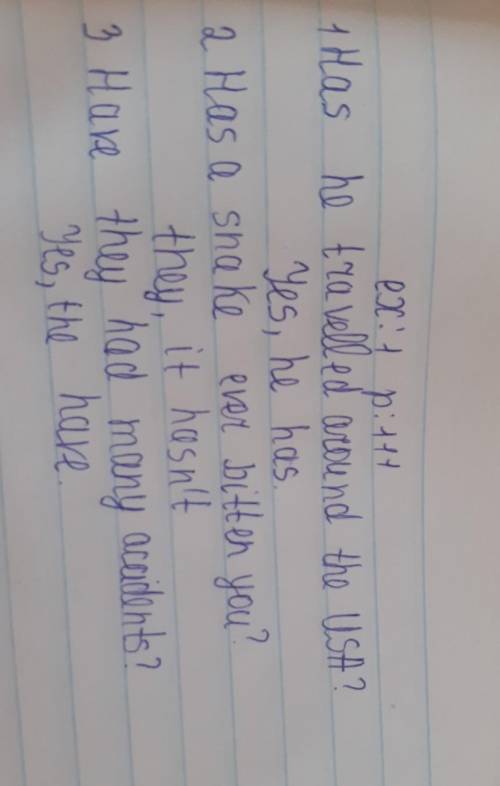 ex: 1 p: 111
1 Has he travelled around the USA?
Yes, he has.
2 Has a snake ever bitten you?
they, it hasn't
3 Have they had many accidents?
Yes, the have.